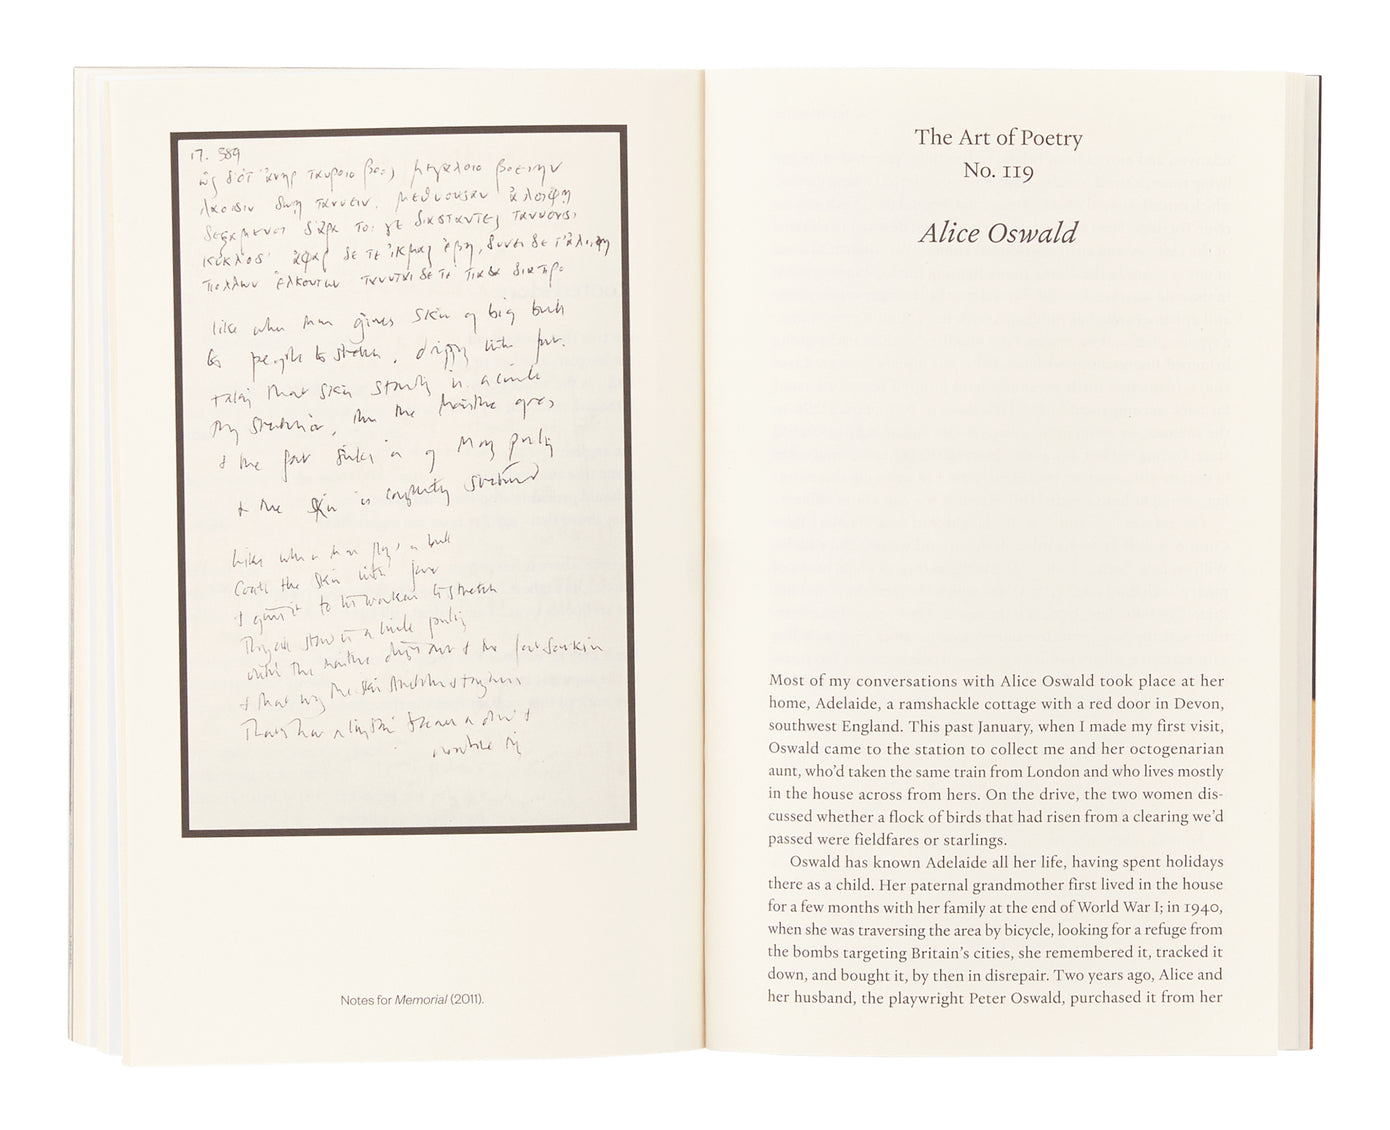 17. 389
ὡς δ' ὅτ' ἀνηρ ταυροιο βοος μεγαλοιο βοειην
λαοισιν δωῃ τανυειν, μεθυουσαν ἀλοιφῃ
δεξαμενοι δ' ἀρα τοι γε διασταντες τανυουσι
κυκλοσ' ἀφαρ δε τε ἰκμας ἐβη, δυνει δε τ' ἀλοιφη
πολλων ἑλκοντων τανυται δε τε πασα διαπρο
like when man gives skin of big bull
to people to stretch, drippy with fat.
taking that skin standing in a circle
they stretch it, then the moisture goes
& the fat sinks in of many pulling
& the skin is completely stretched
Like when a man flays a bull
Coats the skin with fat
& gives it to his workers to stretch
They all stand in a circle pulling
until the moisture and the fat sunk in
& that way the skin
Notes for Memorial (2011).
The Art of Poetry
No. 119
Alice Oswald
Most of my conversations with Alice Oswald took place at her
home, Adelaide, a ramshackle cottage with a red door in Devon,
southwest England. This past January, when I made my first visit,
Oswald came to the station to collect me and her octogenarian
aunt, who'd taken the same train from London and who lives mostly
in the house across from hers. On the drive, the two women dis-
cussed whether a flock of birds that had risen from a clearing we'd
passed were fieldfares or starlings.
Oswald has known Adelaide all her life, having spent holidays
there as a child. Her paternal grandmother first lived in the house
for a few months with her family at the end of World War I; in 1940,
when she was traversing the area by bicycle, looking for a refuge from
the bombs targeting Britain's cities, she remembered it, tracked it
down, and bought it, by then in disrepair. Two years ago, Alice and
her husband, the playwright Peter Oswald, purchased it from her